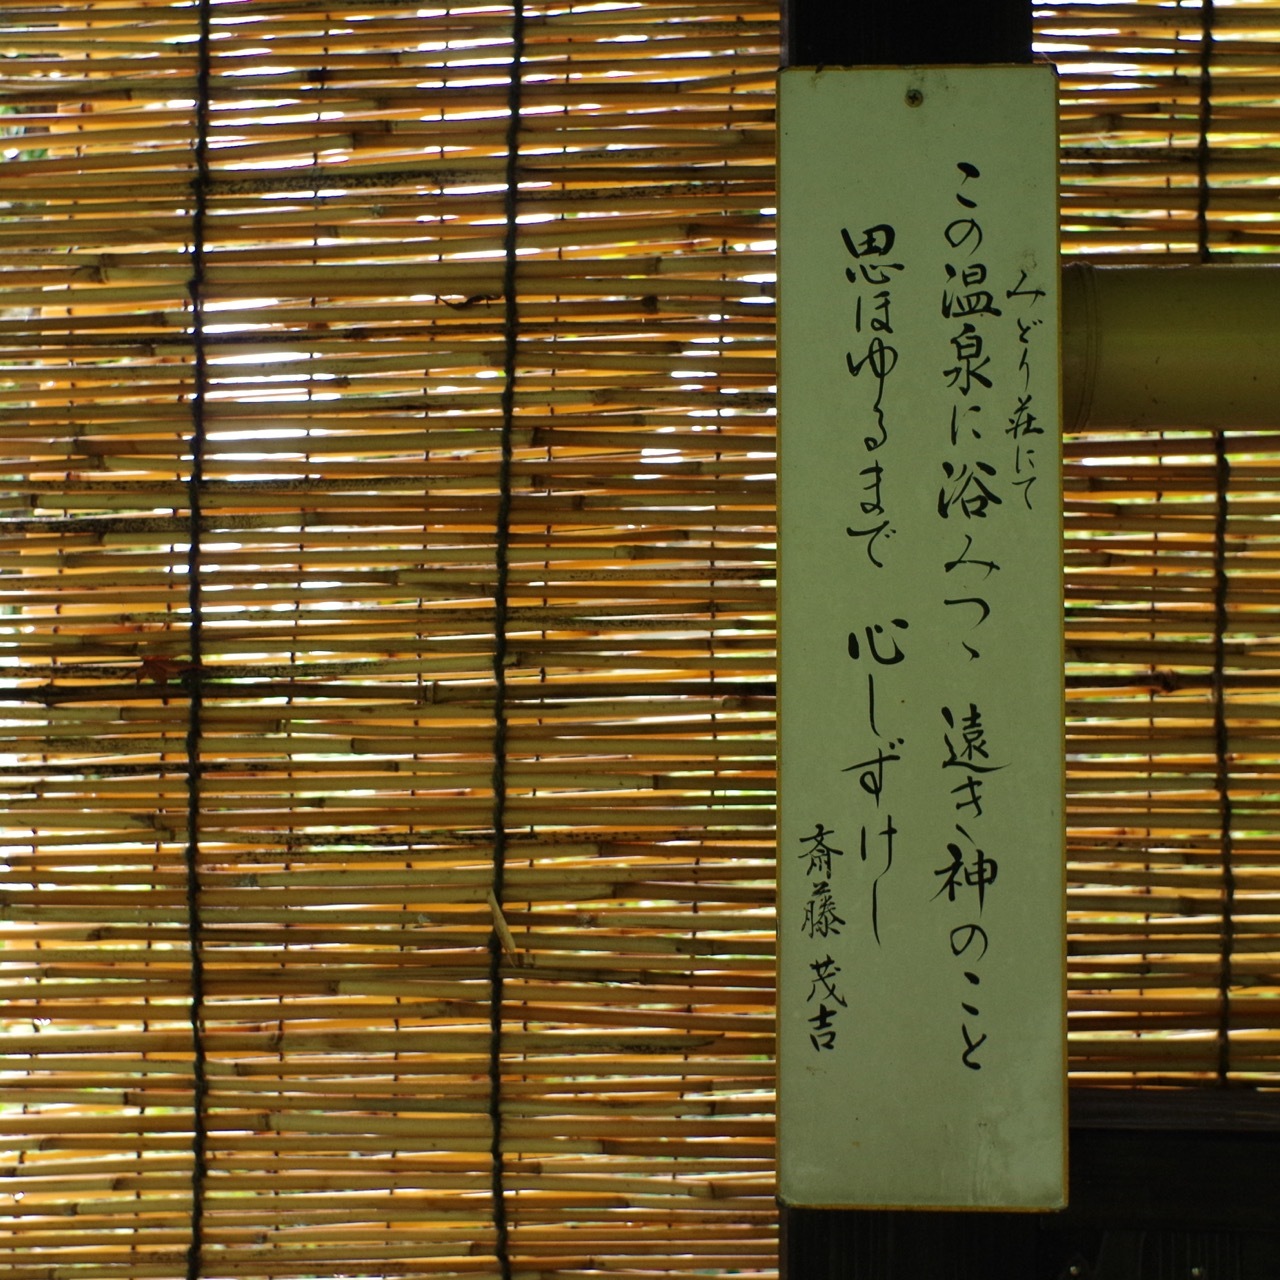 みどり荘にて
この温泉に浴みつゝ 遠きゝ神のこと
思ほゆるまで 心しずけし
斎藤茂吉